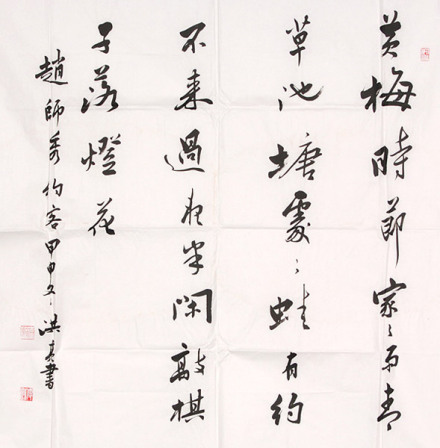 黄梅時節家〻雨青
草池塘處〻蛙有約
不来過夜半閑敲棋
子落燈花
趙師秀約客甲申 洪 書